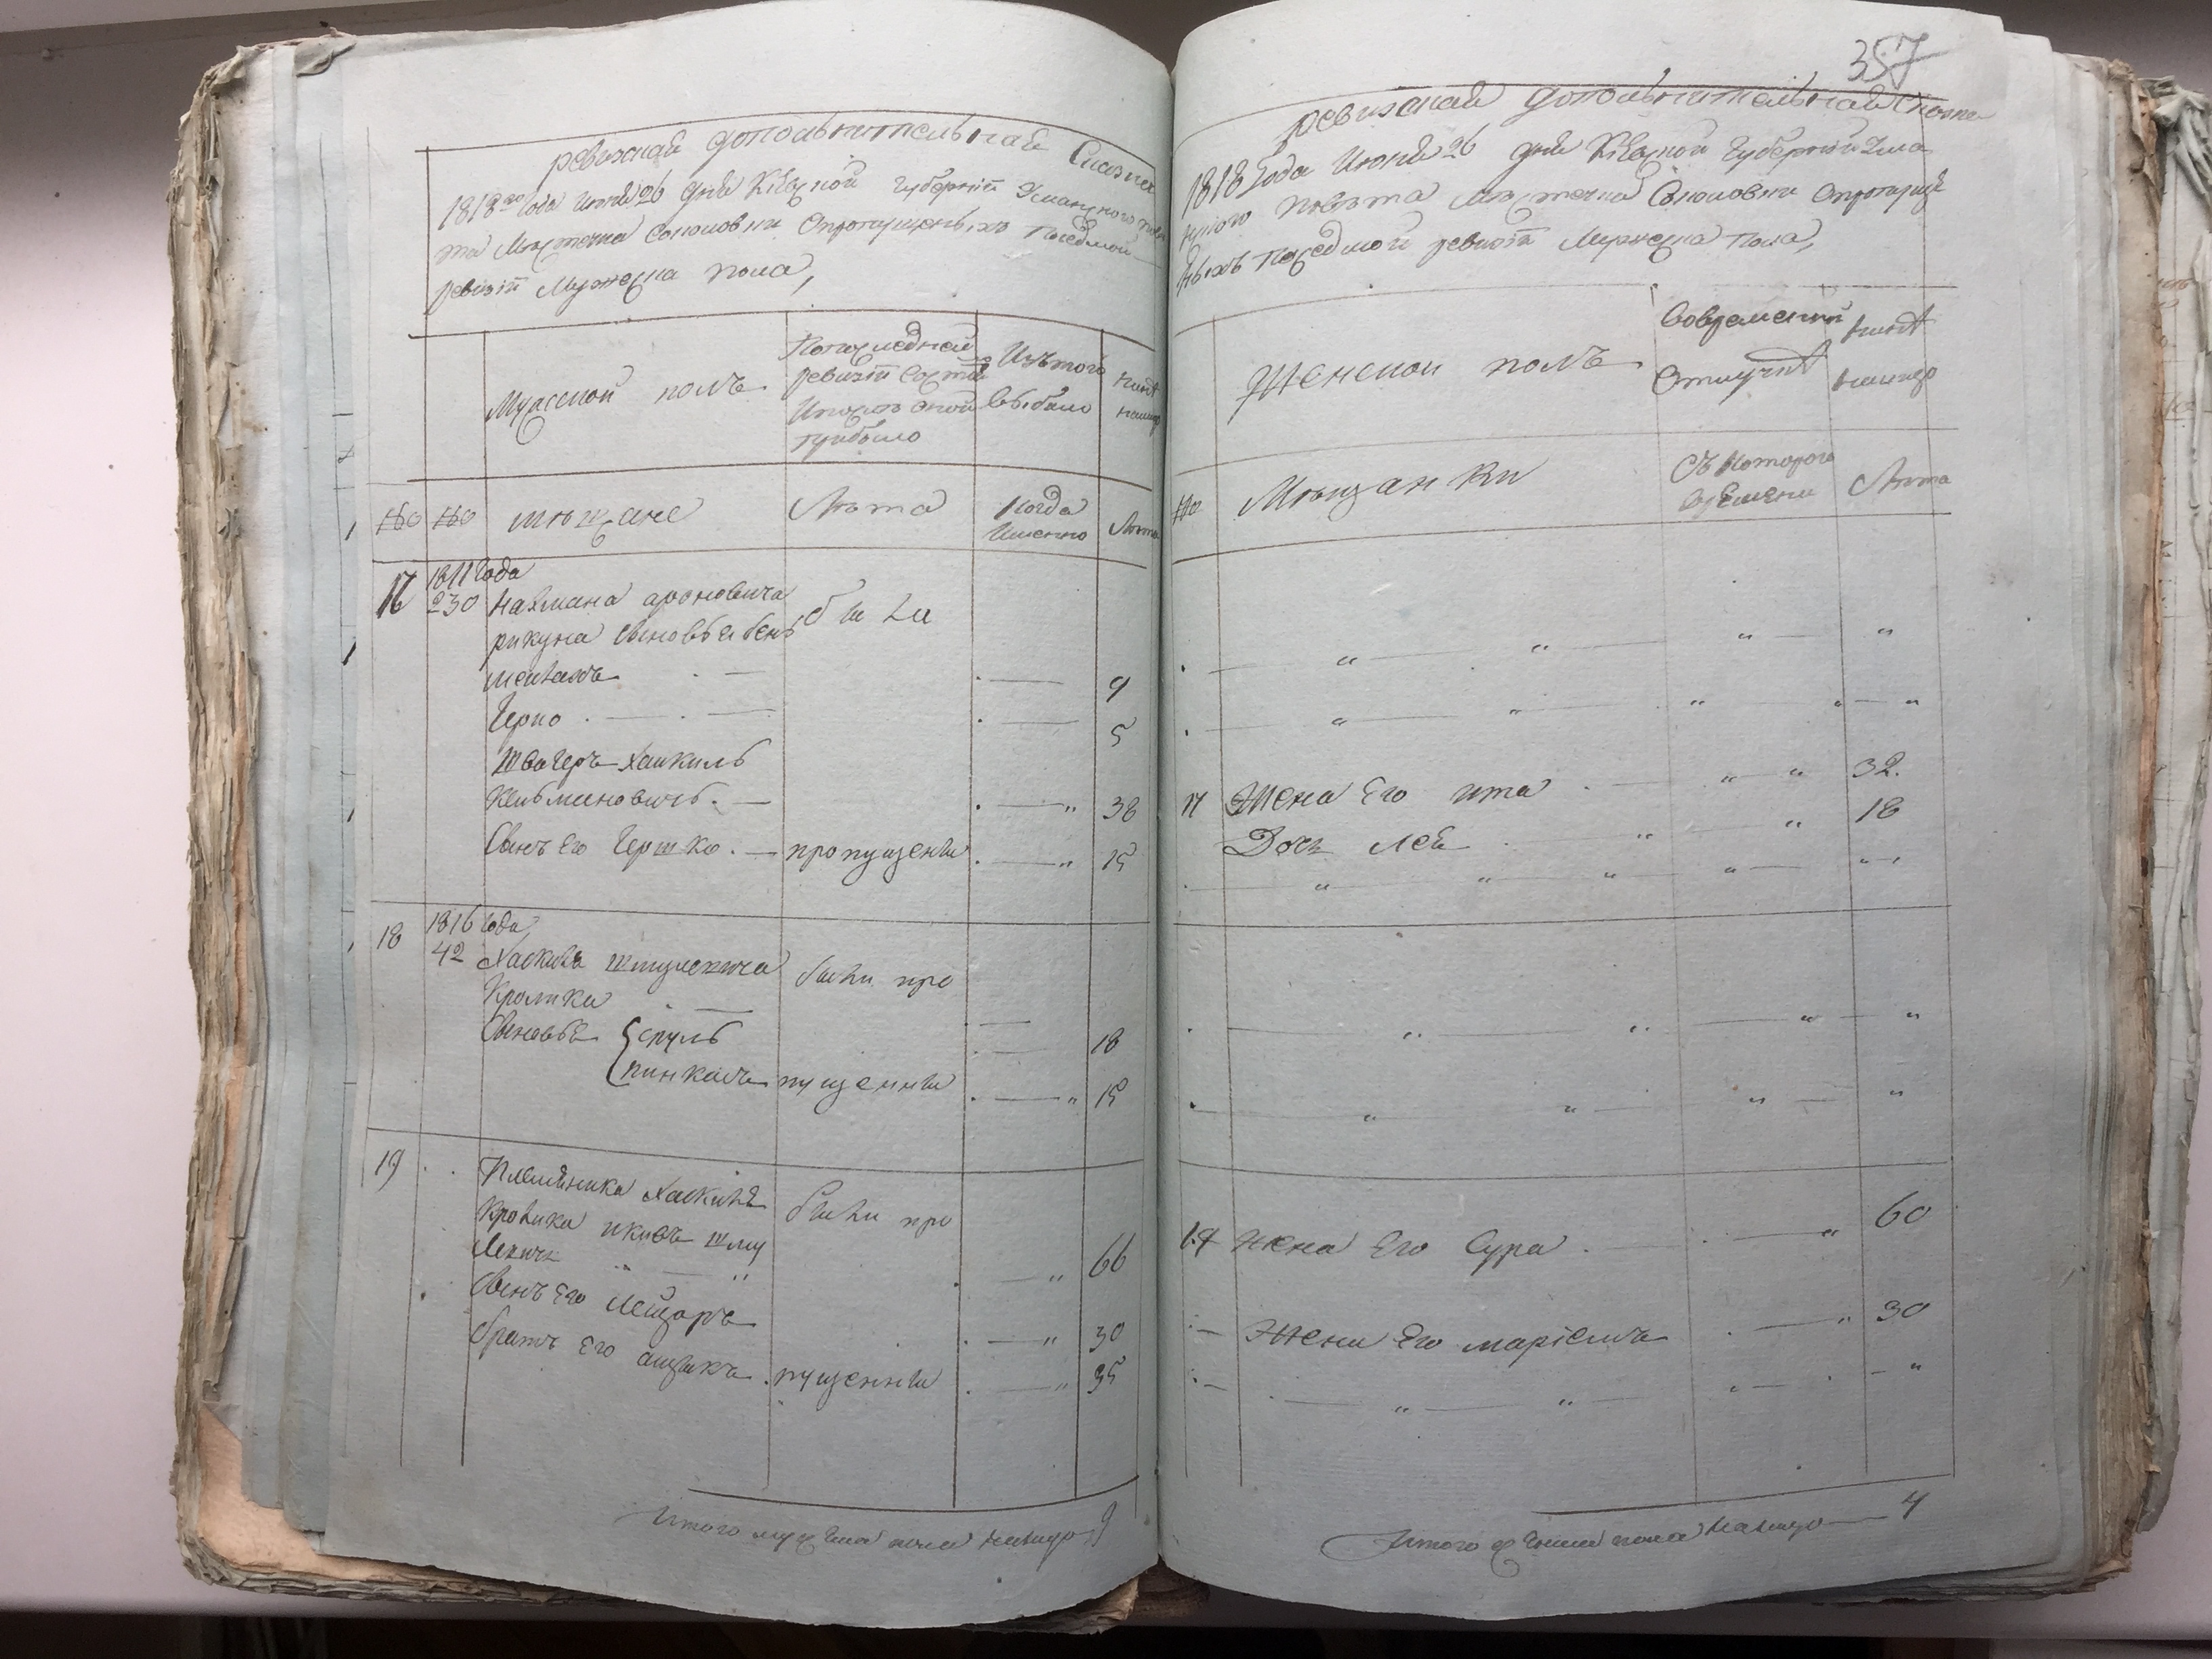 ревизская дополнительная Сказка
1818го Года июня 26 дня Киевской Губернии Уманского пове
та Местечка Соколовки Опропущенных Поседмой
ревизии Мужеска пола,
Мужеской полъ
Попоследней
ревизии состо
Ипослъ оной
прибыло
Изътого
выбыло
ныне
налицо
№ № мещане
Лета
Когда
Именно
Лета
16 1811 Года
230 Нахмана ароновича
рикуна сыновья бень
были
9
Герко 5
швагеръ Хаикиль
Кельмановичъ 38
Сынъ Его Гершко пропущены 15
18 1816 Года
42 Хаскиля шмулевича были про
Кролика
Сыновья сруль 18
пинкасъ пущенны 15
19 Племяника Хаскиля были про
Кролика ицкъ шму
левичъ 66
Сынъ Его Лейзоръ 30
братъ Его аизикъ пущенны 35
Итого мужеска пола налицо 9
357
ревизская дополнительная Сказка
1818 Года Июня 26 дня Киевской Губернии Ума
нского повета Местечка Соколовки Опропуще
ныхъ Поседмой ревизии Мужеска Пола,
Женской полъ
Вовременной
Отлучке
ныне
налицо
№ Мещанки
Съ Которого
времени
Лета
17 Жена Его ита 32.
Дочь Лея 18
19 жена Его Сура 60
Жена Его маріемъ 30
Итого женска пола налицо 4